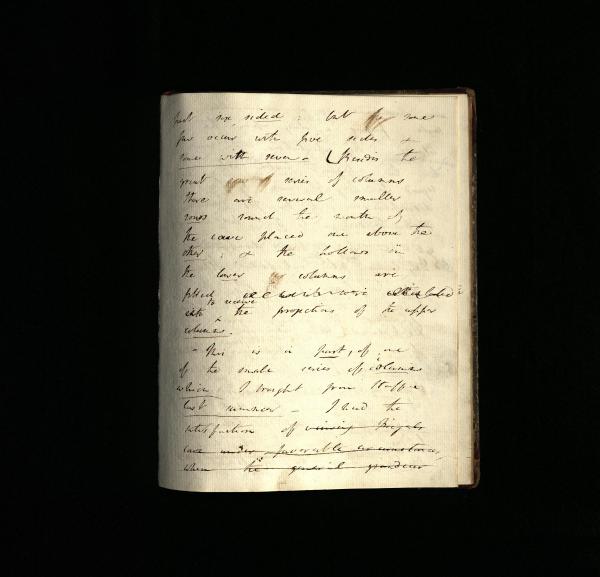 six sided; but for some
few occur with five sides &
some with seven - Besides the
great series of columns
there are several smaller
rows round the mouth of
the cave placed one above the
other; & the hollows in
the lower columns are
fitted
to receive
the projections of the upper
columns.
- This is a part, of one
of the small series of columns
which I brought from Staffa
last summer - I had the
satisfaction of viewing Fingals
cave under favorable circumstances,
when the general grandeur